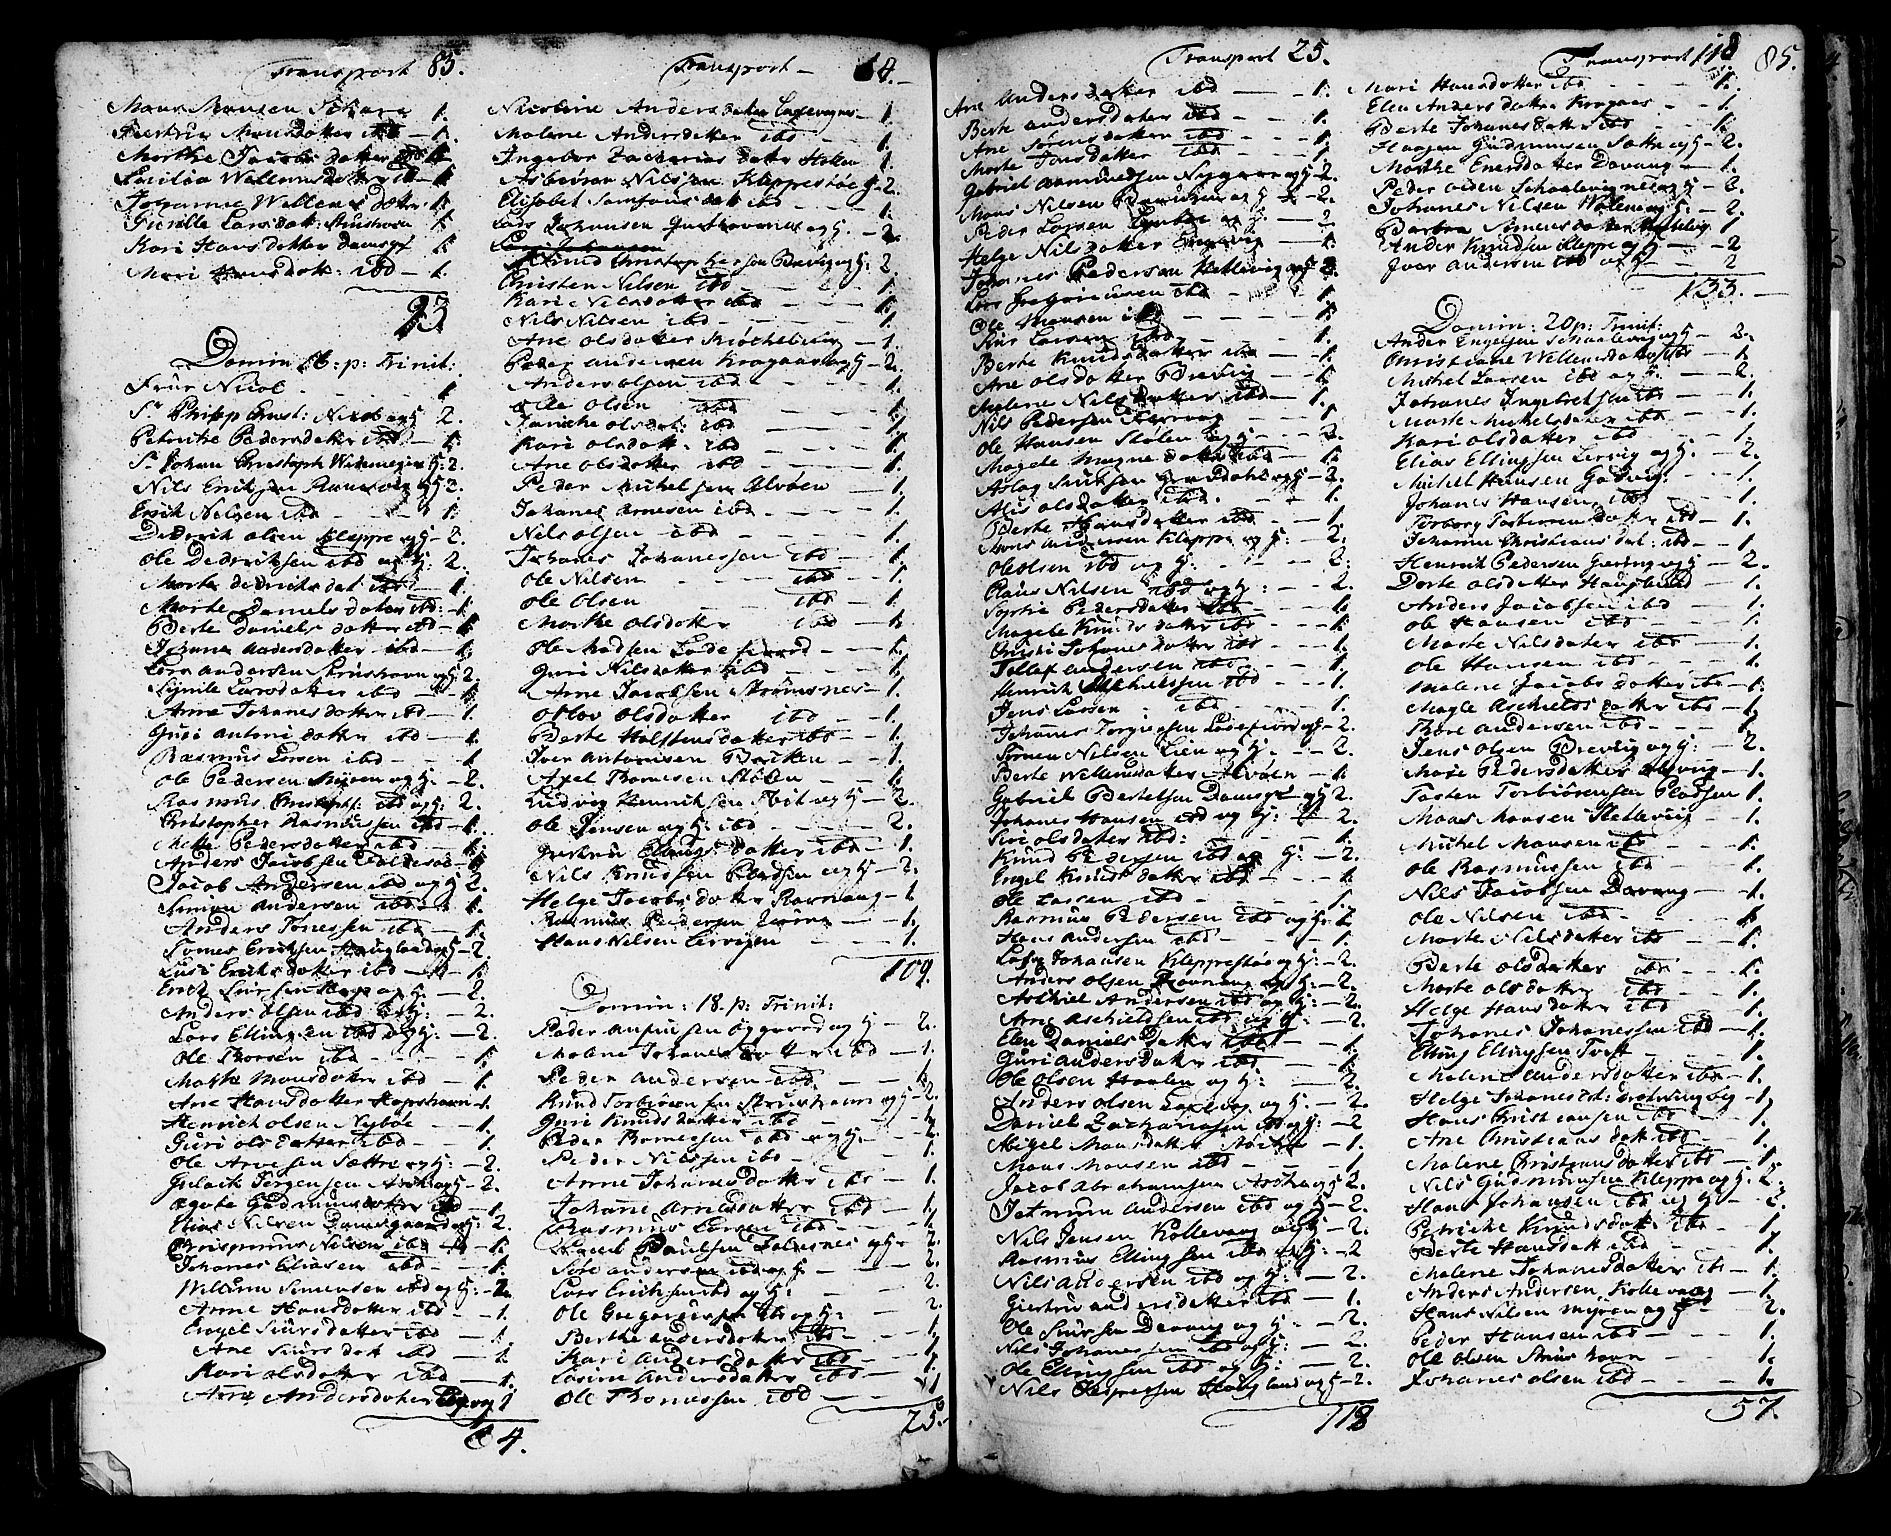 Transport 83.
Mons Monsen Schare 1.
Giertrue Monsdatter ibd 1.
Marthe Jacobsdatter ibd 1.
Cecilia Wellemsdatter ibd 1.
Johanne Wellemsdatter 1.
Gunille Larsdatt: Strushavn 1.
Kari Hansdatter Damsgr 1.
Mari Hansdatt: ibd 1.
93
Domin 16: p: Trinit:
Frue Nicol 1
Sr Philipp Ernst: Nicol og H 2.
Petriche Pedersdatter ibd 1.
Sr Johan Christoph 2.
Nils Erichsen og H 2.
Erich Nilsen ibd 1.
Dedrich olsen Kleppe og H 2.
Ole Dedrichsen ibd og H: 2.
Marte dedrichsdat ibd 1.
Marte Danielsdatter ibd: 1.
Berte Danielsdatter ibd 1.
Johanna andersdatter ibd 1.
Lars andersen Strushavn og H 2.
Larsdatter ibd 1.
Anne Johanesdatter ibd 1.
Guri Antonidatter ibd 1.
Rasmus Larsen ibd 1
Ole Pedersen Myren og H: 2.
Rasmus Christoph: ibd og H: 2.
Christopher Rasmussen ibd 1.
Mette Pedersdatter ibd 1.
Anders Jacobsen 1.
Jacob Andersen ibd og H 2.
Simon andersen ibd 1.
Anders Tonessen ibd 1.
Tonnes Erichsen Haugland og H 2.
Lusi Erichsdatter ibd 1.
Erich og H: 2.
Anders olsen ibd og H: 2.
Lars Ellingsen ibd og H: 2.
Ole Thorsen ibd 1.
Marthe Monsdatter ibd 1.
Ane Hansdatter Hopshavn 1.
Henrich olsen Nyböe 1.
Guri olsdatter ibd 1.
Ole Arnesen Sættre og H: 2.
Gulich Jørgensen Asche og H 2.
Agate Gudmunsdatter ibd 1.
Elias Nilsen Damsgaard og H: 2.
Nilsen ibd 1.
Johanes Eliasen ibd 1.
Willum Simensen ibd og H: 2.
Anne Hansdatter ibd 1.
Engel Siursdatter ibd 1.
Ane Siursdat ibd 1.
Kari olsdatter ibd 1.
Anne Andersdatter 1
64.
Transport 64.
Nicoline Andersdatter 1.
Malene Andersdatter ibd 1.
Ingebor Zachariasdatter 1.
Asbiörn Nilsen Kleppestöe H 2.
Elisabet Samsonsdatt ibd 1.
Lars Johansen og H. 2.
Knud Christophersen Brevig og H: 2.
Christen Nilsen ibd 1.
Kari Nilsdatter ibd 1.
Nils Nilsen ibd 1.
Ane olsdatter 1.
Peder andersen Kragaas og H 2.
Anders olsen ibd 1.
Ole Olsen ibd 1.
Janiche olsdat: ibd 1.
Kari olsdatt: ibd 1.
Ane olsdatter ibd 1.
Peder Michelsen Alvöen 1.
Johanes Arnesen ibd 1.
Nils olsen ibd 1.
Johanes Johanessen ibd 1.
Ole Nilsen ibd 1.
Ole Olsen ibd 1.
Marthe olsdatter ibd 1.
Ole Madsen Lodefiorrd 1.
Guri Nilsdatter ibd 1.
Arne Jacobsen Strömsnes 1.
Oslov olsdatter ibd 1.
Berte Halstensdatter ibd 1.
Iver Antonisen Bacchen 1.
Axel Thomesen Stölen 1.
Ludvig Henrichsen ibid og H 2.
Ole Jensen og H: ibd 2.
Giertrue Ellingsdatter ibd 1.
Nils Knudsen og H 2.
Helge Jacobsdatter Ravnang 1
Rasmus Pedersen 1.
Hans Nilsen Lervigen 1.
109.
Domin: 18. p: Trinit:
Peder Anfinsen og H 2.
Malene Johanesdatter ibd 1.
Peder andersen ibd 1.
Knud Torbiörnsen Strushavn og H 2.
Guri Knudsdatter ibd 1.
Peder ibd og H: 2.
Peder Nilssen ibd 1.
Anne Johanesdatter ibd 1.
Johane Arnesdatter ibd 1.
Rasmus Larsen ibd 1.
Paulsen og H 2.
andersen ibd og H 2.
Lars Erichsen ibd og H: 2.
Ole Gregoriussen ibd og H: 2.
Berthe andersdatter ibd 1.
Kari Andersdatter ibd 1.
Andersdatter ibd 1.
Ole Thomessen ibd 1
25.
Transport 25.
Ane Andersdatter ibd 1.
Berte andersdatter ibd 1.
Ane Sörensdatter ibd 1.
Marte Jonsdatter ibd 1.
Gabriel Aamundsen Nygaard og H 2.
Mons Nilsen og H 2.
Peder Larsen og H: 2
Helge Nilsdatter 1.
Johannes Pedersen Hetlevig og H 2.
Lars Gregoriussen ibd 1.
Ole Monsen ibd 1.
Siur Larsen ibd 1.
Berte Knudsdatter ibd 1.
Ane olsdatter Brevig 1
Malene Nilsdatter ibd 1.
Nils Pedersen 1
Ole Hansen Stölen og H 2.
Magele Mognesdatter ibd 1.
Aslag og H 2.
Alis olsdatter ibd. 1.
Berte Hansdatter ibd 1.
Mons andersen Kleppe og H: 2.
Ole olsen ibd og H: 2.
Claus Nilsen ibd og H: 2.
Pedersdatter ibd 1.
Magele Knudsdatter ibd 1.
Christi Johanesdatter ibd 1.
Tollef andersen ibd 1.
Henrich Michelssen ibd 1.
Jens Larsen ibd 1.
Johannes Torgiersen og H 2.
Sörnen Nilsen Lien og H: 2.
Berte Wellemsdatter Alvöen 1.
Gabriel Bertelsen Damsgr og H 2.
Johanes Hansen ibd og H: 2.
Siri olsdatter ibd: 1.
Knud Pedersen ibd og H: 2.
Engel Knudsdatter ibd 1.
Ole Larsen ibd 1.
Rasmus Pedersen ibd og H: 2.
Hans Andersen ibd 1.
Johansen Kleppestöe og H: 2.
Anders olsen Ravnang og H: 2.
Aschiel Andersen ibd og H: 2.
Arne Aschielsen ibd og H: 2.
Elen Danielsdatter ibd 1.
Guri Andersdatter ibd 1.
Ole Olsen Haalen og H: 2.
Anders olsen og H. 2.
Daniel Zachariasen ibd og H: 2
Helge Monsdatter 1.
Mons Monsen ibd 1.
Jacob Abrahamsen Asche og H 2.
Johannes andersen ibd og H 2.
Nils Jensen Kollevaag og H: 2.
Rasmus Ellingsen ibd og H: 2
Nils Andersen ibd og H: 2.
Giertrue andersdatter ibd 1.
Ole Siursen Davang og H: 2.
Nils Johanessen ibd og H: 2.
Ole Ellingsen ibd og H: 2.
Nils Haugland og H 2.
118
Transport 118
85.
Mari Hansdatter ibd 1.
Elen Andersdatter Kragaas 1.
Berte Johanesdatter ibd 1.
Haagen Gudmunsen Sættre og H 2.
Marthe Enersdatter Davang 1.
Peder olsen og H 2.
Johanes Nilsen og H: 2.
Barbra Simensdatter 1
Ander Knudsen Kleppe og H 2
Iver andersen ibd og H 2
133.
Domin: 20 p: Trinit:
Ander Engelsen og H 2.
Christiane Wellemsdatter ibd 1
Michel Larsen ibd og H. 2.
Johanes Ingebretsen ibd 1.
Marte Michelsdatter ibd 1.
Kari olsdatter ibd 1.
Elias Ellingsen Lervig og H. 2.
Michel Hansen Gödvig: 1.
Johanes Hansen ibd 1.
Torborg Tostensdatter ibd 1.
Johanne Christiansdat: ibd 1.
Henrich Pedersen og H 2.
Dorte olsdatter Haugland 1.
Anders Jacobsen ibd 1.
Ole Hansen ibd 1.
Marte Nilsdatter ibd 1.
Ole Hansen ibd 1.
Malene Jacobsdatter ibd 1.
Magle Aschielsdatter ibd 1
Thore andersen ibd 1.
Jens olsen Brevig og H: 2.
Mari Pedersdatter 1.
Tosten Torbiörnsen 1.
Mons Monsen Hetlevig 1.
Michel Monsen ibd 1.
Ole Rasmussen ibd 1.
Nils Jacobsen Davang 1.
Ole Nilsen ibd 1.
Marte Nilsdatter ibd 1.
Berte olsdatter ibd 1.
Marte olsdatter ibd 1.
Helge Hansdatter ibd 1.
Johanes Johanessen ibd 1.
Elling Ellingsen 1.
Malene Andersdatter ibd 1.
Helge Johanesdat: 1.
Hans Christiansen ibd 1.
Ane Christiansdatt ibd 1.
Malene Christiansdatter ibd 1.
Nils Gudmunsen Kleppe og H: 2.
Hans Johansen ibd og H 2.
Petriche Knudsdatt ibd 1.
Berte Hansdatt ibd 1.
Malene Johanesdatter ibd 1.
Anders Andersen Kollevaag 1.
Hans Nilsen Myren og H 2.
Peder Hansen ibd 1.
Ole olsen Strushavn 1.
Johanes olsen ibd 1.
57.